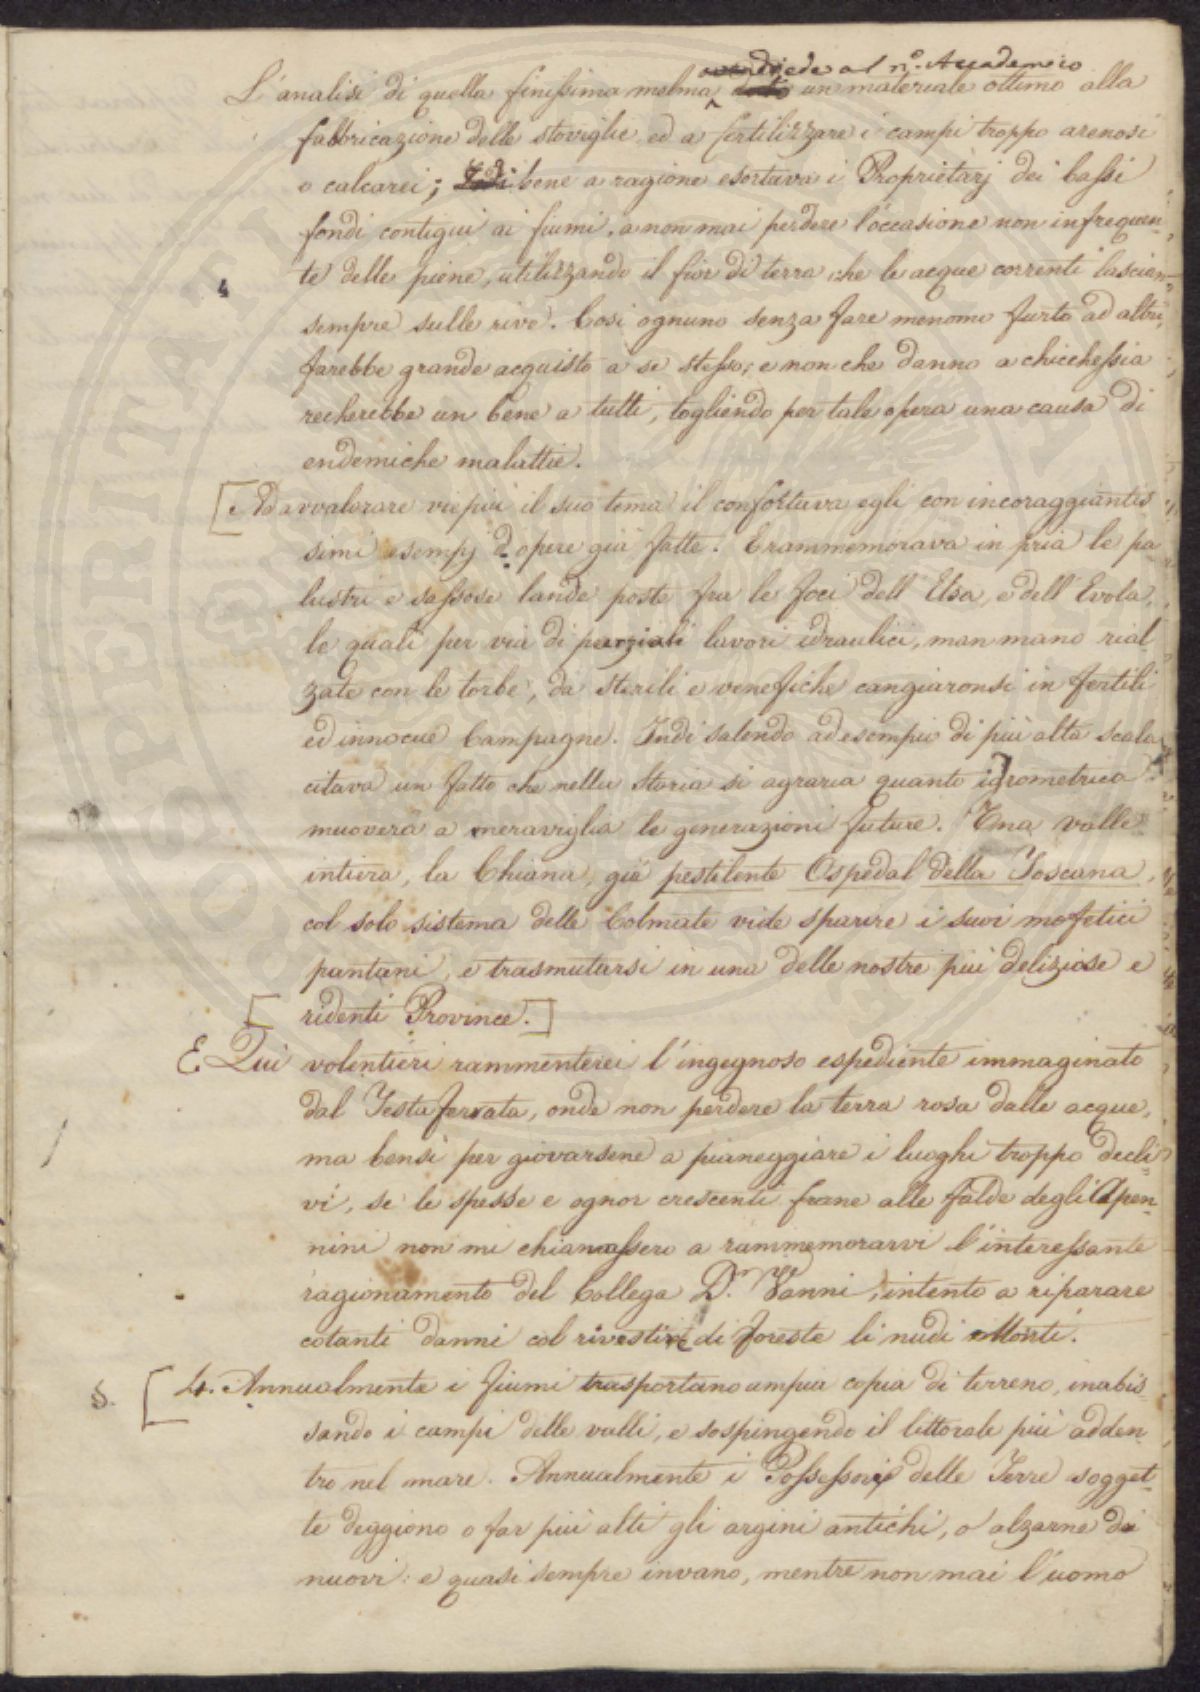 diede al n.º Accademico
L'analisi di quella finissima melma un materiale ottimo alla
fabbricazione delle stoviglie, ed a fertilizzare i campi troppo arenosi
o calcarei; bene a ragione esortava i Proprietarj dei bassi
fondi contigui ai fiumi, a non mai perdere l'occasione non infrequen-
te delle piene, utilizzando il fior di terra che le acque correnti lascian
4
sempre sulle rive. Così ognuno senza fare menomo furto ad altri,
farebbe grande acquisto a se stesso; e non che danno a chicchessia
recherebbe un bene a tutti, togliendo per tale opera una causa di
endemiche malattie.
[Ad avvalorare viepiù il suo tema il confortava egli con incoraggiantis
simi esempj d'opere già fatte. E rammemorava in pria le pa
lustri e sassose lande poste fra le foci dell'Elsa, e dell'Evola,
le quali per via di parziali lavori idraulici, man mano rial
zate con le torbe, da sterili e venefiche cangiaronsi in fertili
ed innocue Campagne. Indi salendo ad esempio di più alta scala
citava un fatto che nella storia si agraria quanto igrometrica
muoverà a meraviglia le generazioni future. Una valle
intiera, la Chiana, già pestilente Ospedal della Toscana,
col solo sistema delle Colmate vide sparire i suoi mofetici
pantani, e trasmutarsi in una delle nostre più deliziose e
[ridenti Province.]
E Qui volentieri rammenterei l'ingegnoso espediente immaginato
dal Testaferrata, onde non perdere la terra rosa dalle acque,
ma bensì per giovarsene a pianeggiare i luoghi troppo decli-
vi, se le spesse e ognor crescenti frane alle falde degli Apen-
nini non mi chiamassero a rammemorarvi l'interessante
ragionamento del Collega D.r Vanni, intento a riparare
cotanti danni col rivestire di foreste li nudi Monti.
§. [4. Annualmente i fiumi trasportano ampia copia di terreno, inabis
sando i campi delle valli, e sospingendo il littorale più adden-
tro nel mare. Annualmente i Possessori delle Terre sogget-
te deggiono o far più alti gli argini antichi, o alzarne di
nuovi: e quasi sempre invano, mentre non mai l'uomo